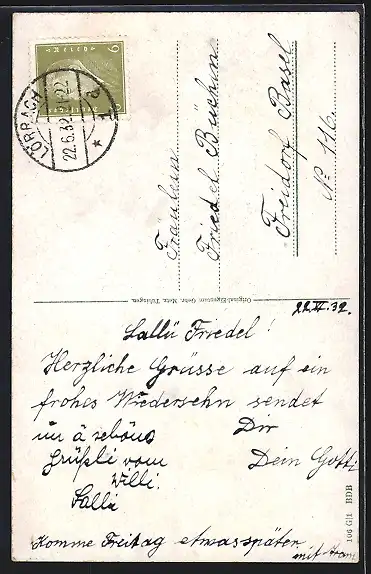 LÖRRACH
22.6.32
Fräulein
Friedel Büchin
Freidorf Basel
No 116.
Original-Eigentum Gebr. Metz, Tübingen.
22.VI.32.
Sallü Friedel!
Herzliche Grüsse auf ein
frohes Wiedersehn sendet
un ä schöns Dir
Grüßli vom Dein Gotti
Willi.
Salli
Komme Freitag etwas später
mit Tram
106 GJ1 BDB